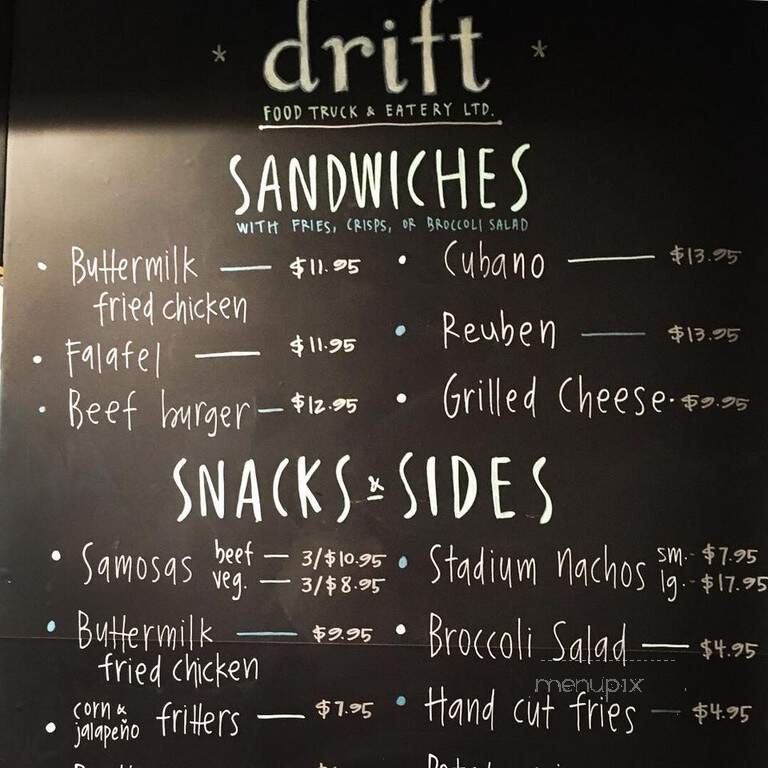 * drift *
FOOD TRUCK & EATERY LTD.
SANDWICHES
WITH FRIES, CRISPS, OR BROCCOLI SALAD
• Buttermilk — $11.95
fried chicken
• Falafel — $11.95
• Beef burger — $12.95
• Cubano — $13.95
• Reuben — $13.95
• Grilled Cheese · $9.95
SNACKS & SIDES
• Samosas beef — 3/$10.95
veg. — 3/$8.95
• Buttermilk — $9.95
fried chicken
• corn & jalapeño fritters — $7.95
• Stadium nachos sm. - $7.95
lg. - $17.95
• Broccoli Salad — $4.95
menupix
• Hand cut fries — $4.95